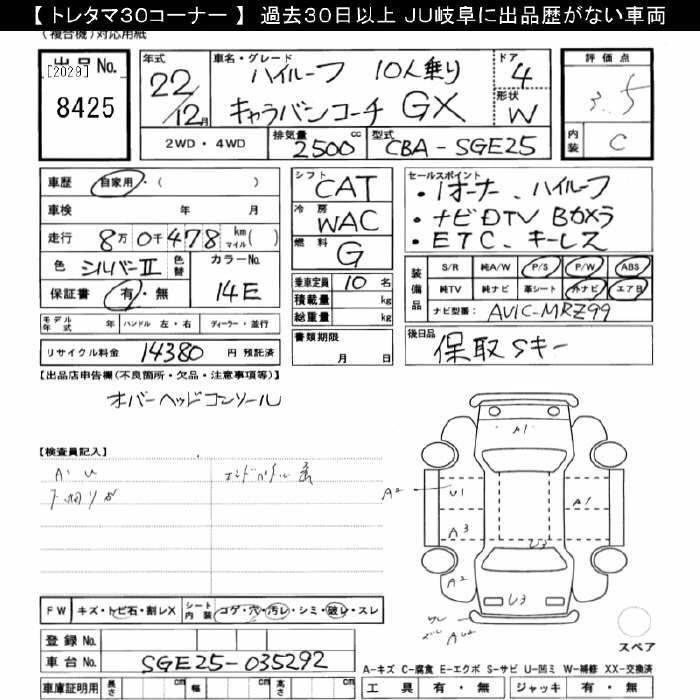 【 トレタマ30コーナー 】 過去30日以上 JU岐阜に出品歴がない車両
(複合機)対応用紙
出品No. [2029]
8425
年式 22/12月
車名・グレード ハイルーフ 10人乗り
キャラバンコーチ GX
ドア 4
形状 W
評価点 3.5
内装 C
2WD・4WD
排気量 2500 cc
型式 CBA-SGE25
車歴 自家用・( )
車検 年 月
走行 8万0千478 km マイル( )
色 シルバーⅡ 色替
カラーNo. 14E
保証書 有・無
シフト CAT
冷房 WAC
燃料 G
乗車定員 10 名
積載量 kg
総重量 kg
書類期限 月 日
セールスポイント
・1オーナー、ハイルーフ
・ナビDTV Bカメラ
・ETC、キーレス
装備品 S/R 純A/W P/S P/W ABS
純TV 純ナビ 革シート 外ナビ エアB
ナビ型番: AVIC-MRZ99
モデル年式 年 ハンドル 左・右 ディーラー・並行
リサイクル料金 14380 円 預託済
後日品 保取Sキー
【出品店申告欄(不良箇所・欠品・注意事項等)】
オーバーヘッドコンソール
【検査員記入】
A・U
A1
A2 U1 A1
A3 U3
A2
U3
FW キズ・トビ石・割レX シート内装 コゲ・穴・汚レ・シミ・破レ・スレ
スペア
登録No.
車台No. SGE25-035292
A-キズ C-腐食 E-エクボ S-サビ U-凹ミ W-補修 XX-交換済
車庫証明用 長さ cm 幅 cm 高さ cm
工具 有・無 ジャッキ 有・無